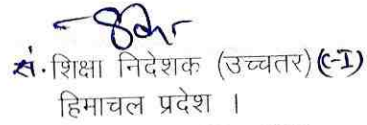 सं. शिक्षा निदेशक (उच्चतर) (C-I)
हिमाचल प्रदेश ।